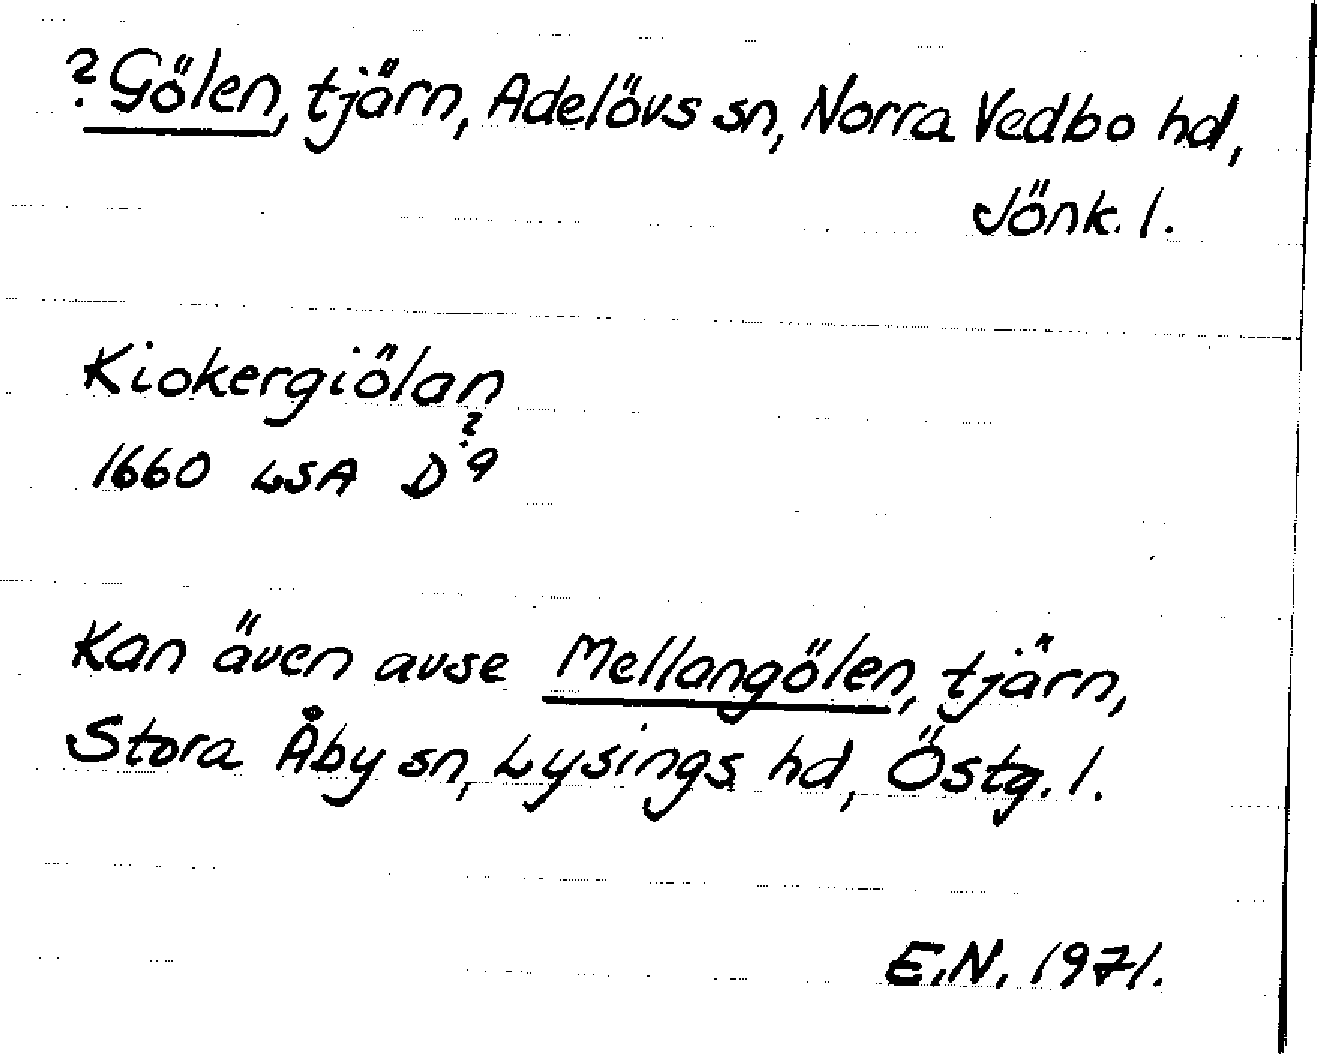 ? Gölen, tjärn, Adelövs sn, Norra Vedbo hd,
Jönk. l.
Kiokergiölan
1660 LSA D ? 9
Kan även avse Mellangölen, tjärn,
Stora Åby sn, Lysings hd, Östg. l.
E.N. 1971.